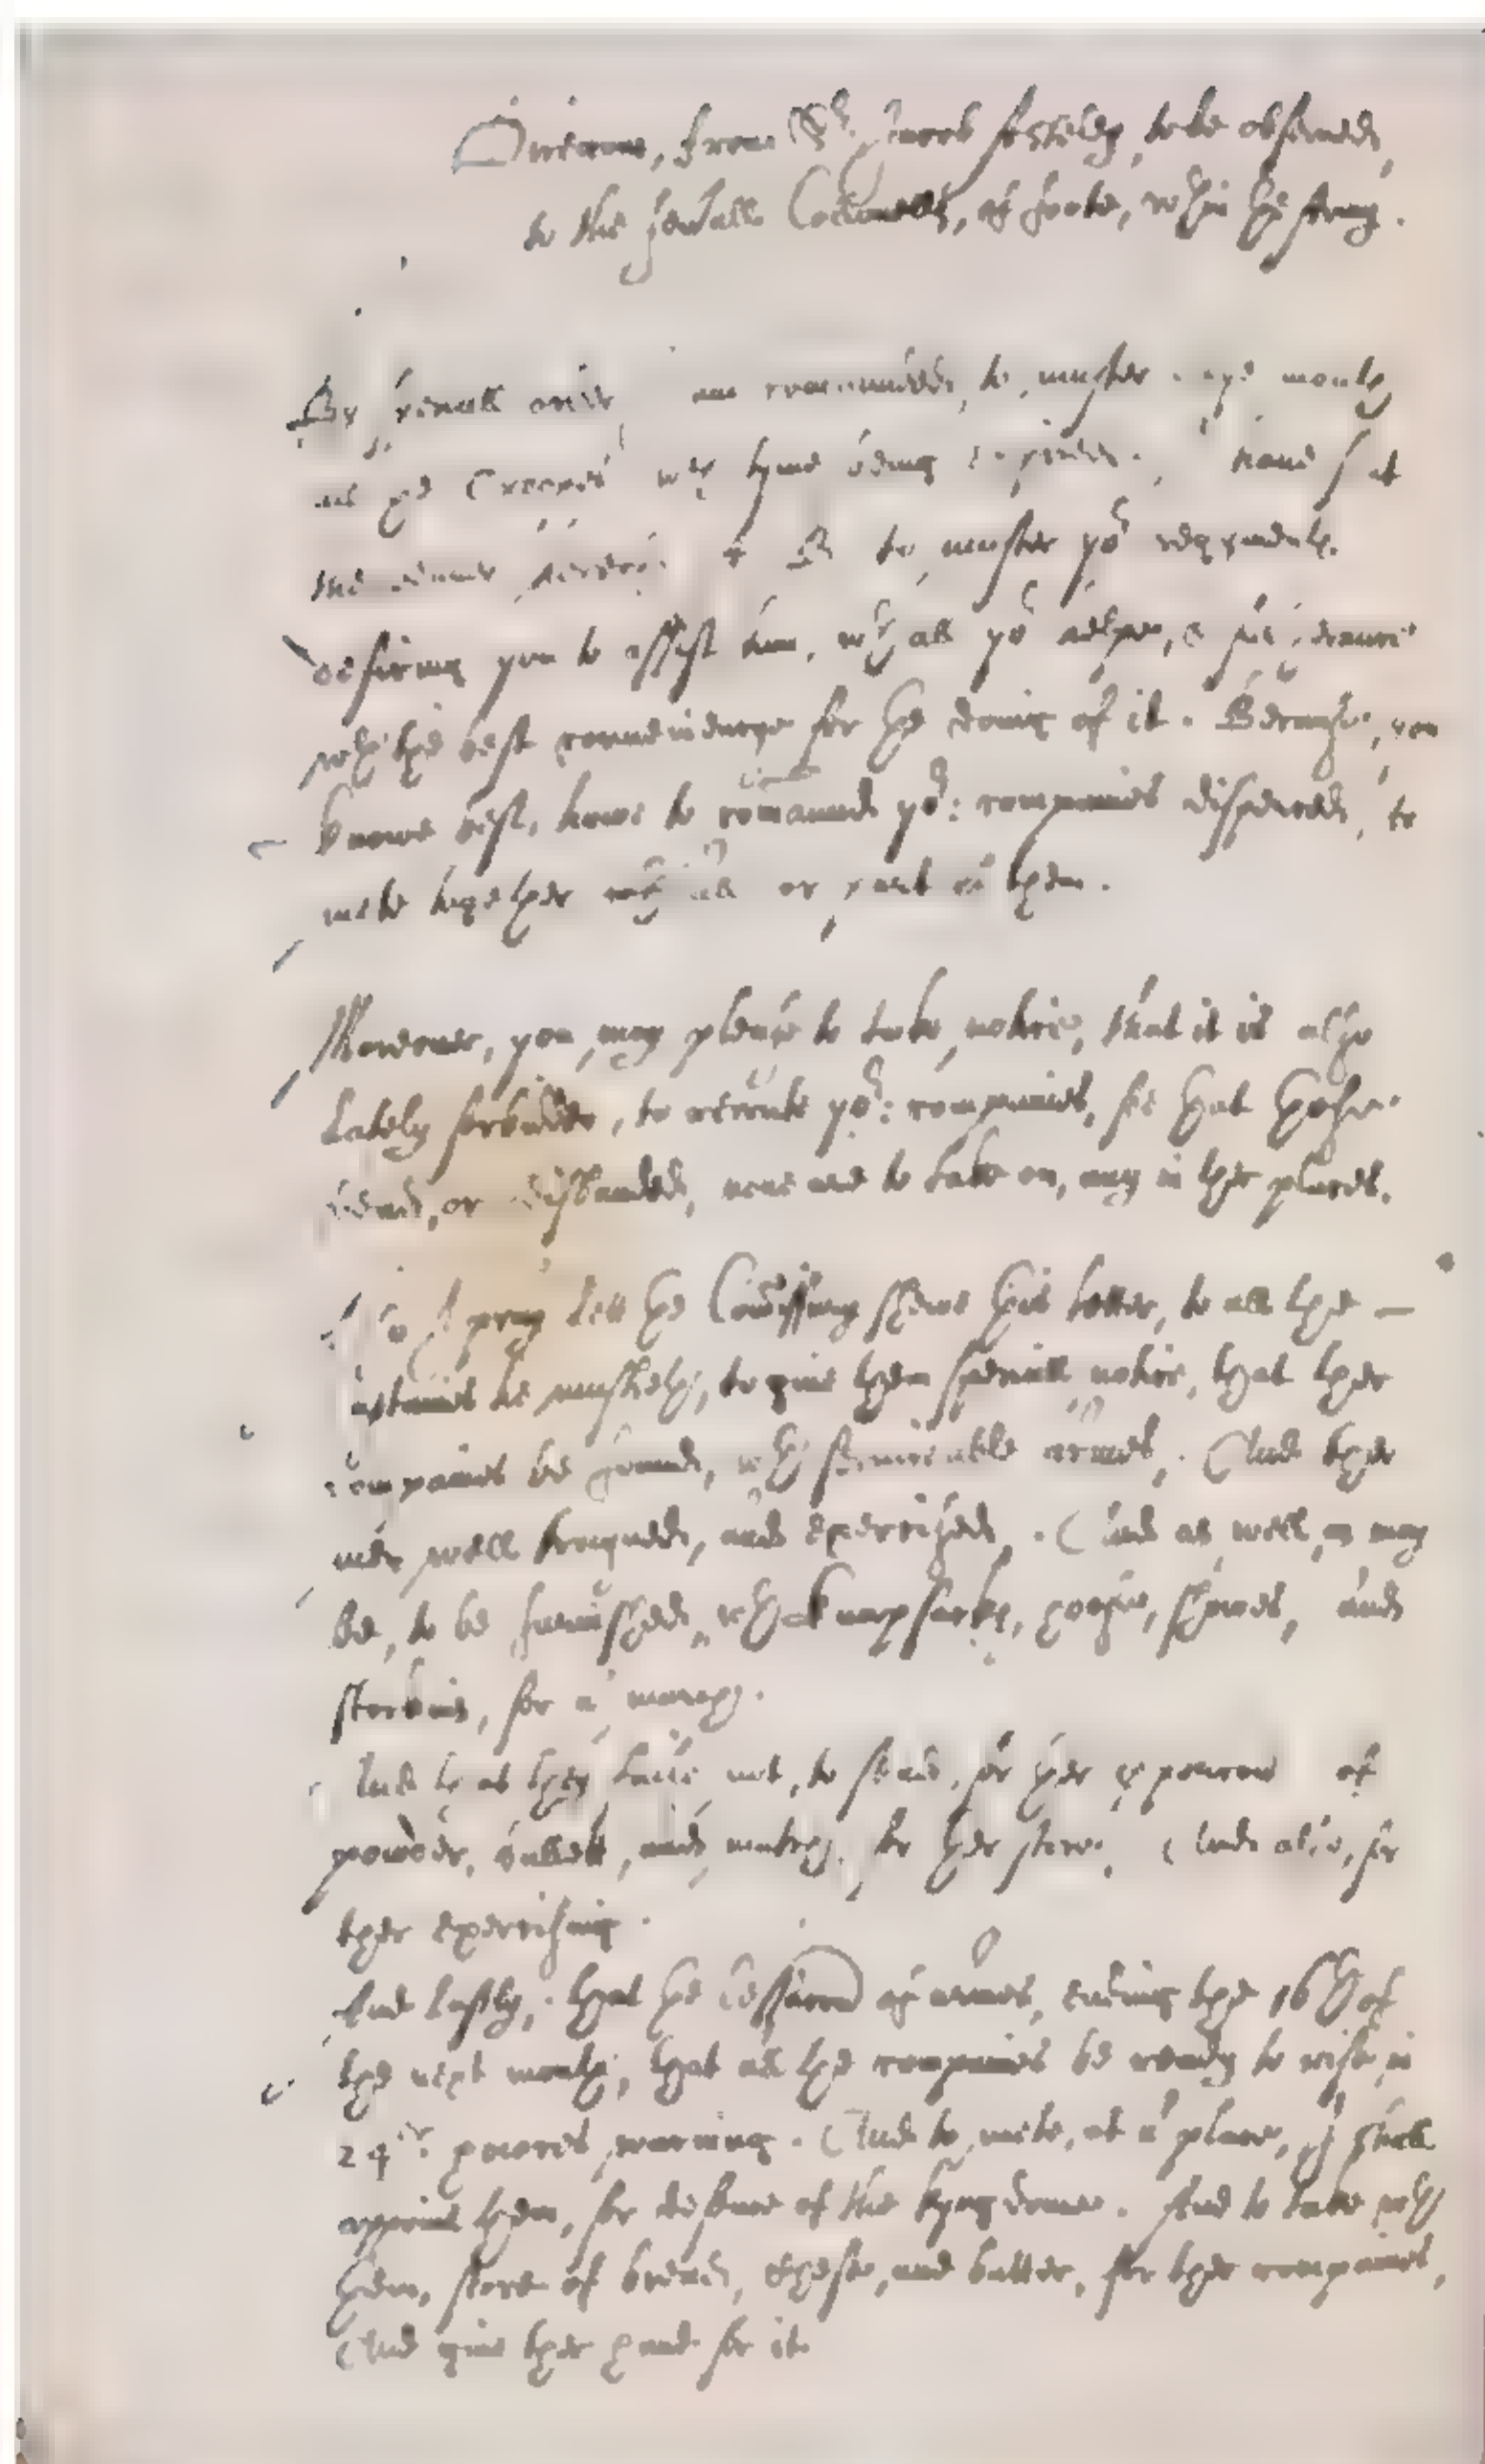 from Sr. Jacob Asteley, to be observed,
to the severall Collonells, of foote, wthin the Army.
By severall order am commanded, to muster once monthly
all ye tyme being expired. have sent
the bearer to muster yor regyments.
desiring you to assist him, wth all yor helpe,
wth the best conveniencye for the doing of it. Because, you
knowe best, howe to comaund yor: companies dispersed, to
mete together wth all or part of them.
Moreover, you may please to take notice, that it is also
Lately forbidden, to recrute yor: companies, for that those
dead, or disbanded, none are to take on, any in ther places.
I pray lett the Comissary shewe this letter, to all the —
he musters, to give them speciall notice, that ther
companies be found, wth serviceable armes. And ther
men well trayned, and exercised. And as well as may
be, to be furnished, wth knapsacks, hoose, shooes, and
stockins, for a march.
And that they faile not, to send, for ther proporcion of
powder, bullett, and match, for ther store. And also, for
ther exercising.
And lastly, that the Cessacon of armes, ending the 16th of
the next month, that all the companies be ready to rise, in
24er howres warning. And to mete, at a place, I shall
appoint them, for defence of the kyngdome. And to take wth
them, store of bread, chese, and butter, for ther companies,
And give ther hand for it.